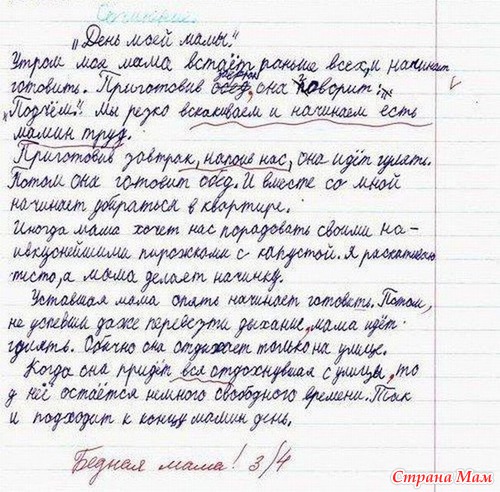 Сочинение.
„День моей мамы."
Утром моя мама встаёт раньше всех, и начинает
готовить. Приготовив завтрак, она говорит:
„Подъём". Мы резко вскакиваем и начинаем есть
мамин труд.
Приготовив завтрак, напоив нас, она идёт гулять.
Потом она готовит обед. И вместе со мной
начинает убираться в квартире.
Иногда мама хочет нас порадовать своими на-
ивкуснейшими пирожками с капустой. Я раскатываю
тесто, а мама делает начинку.
Уставшая мама опять начинает готовить. Потом,
не успевши даже перевезти дыхание, мама идёт
гулять. Обычно она отдыхает только на улице.
Когда она придёт вся отдохнувшая с улицы, то
у неё остаётся немного свободного времени. Так
и подходит к концу мамин день.
Бедная мама! 3/4
Страна Мам